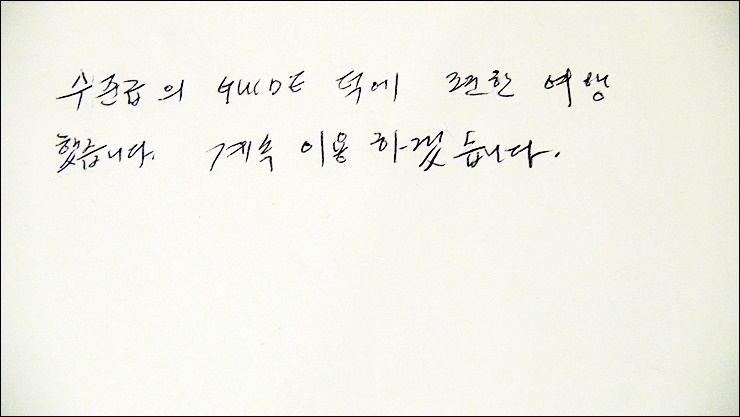 수준급의 GUIDE 덕에 편한 여행
했습니다. 계속 이용 하겠습니다.